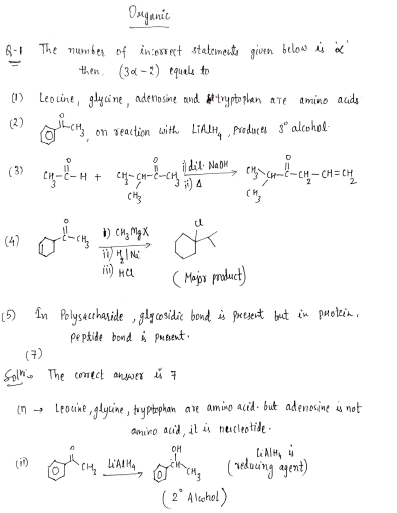 Organic
Q-1 The number of incorrect statements given below is 'α'
then, (3α-2) equals to
(1) Leocine, glycine, adenosine and tryptophan are amino acids
(2) O C-CH3, on reaction with LiAlH4, produces 3° alcohol.
(3) CH3-C-H + CH3-CH-C-CH3 i) dil. NaOH ii) Δ → CH3 CH-C-CH2-CH=CH2
O O CH3 O CH3
(4) O C-CH3 i) CH3MgX ii) H2/Ni iii) HCl → Cl
(Major product)
(5) In Polysaccharide, glycosidic bond is present but in protein,
peptide bond is present.
(7)
Soln:- The correct answer is 7
(i) → Leocine, glycine, tryptophan are amino acid. but adenosine is not
amino acid, it is nucleotide.
(ii) O C CH3 LiAlH4 → OH CH CH3 (LiAlH4 is reducing agent)
(2° Alcohol)